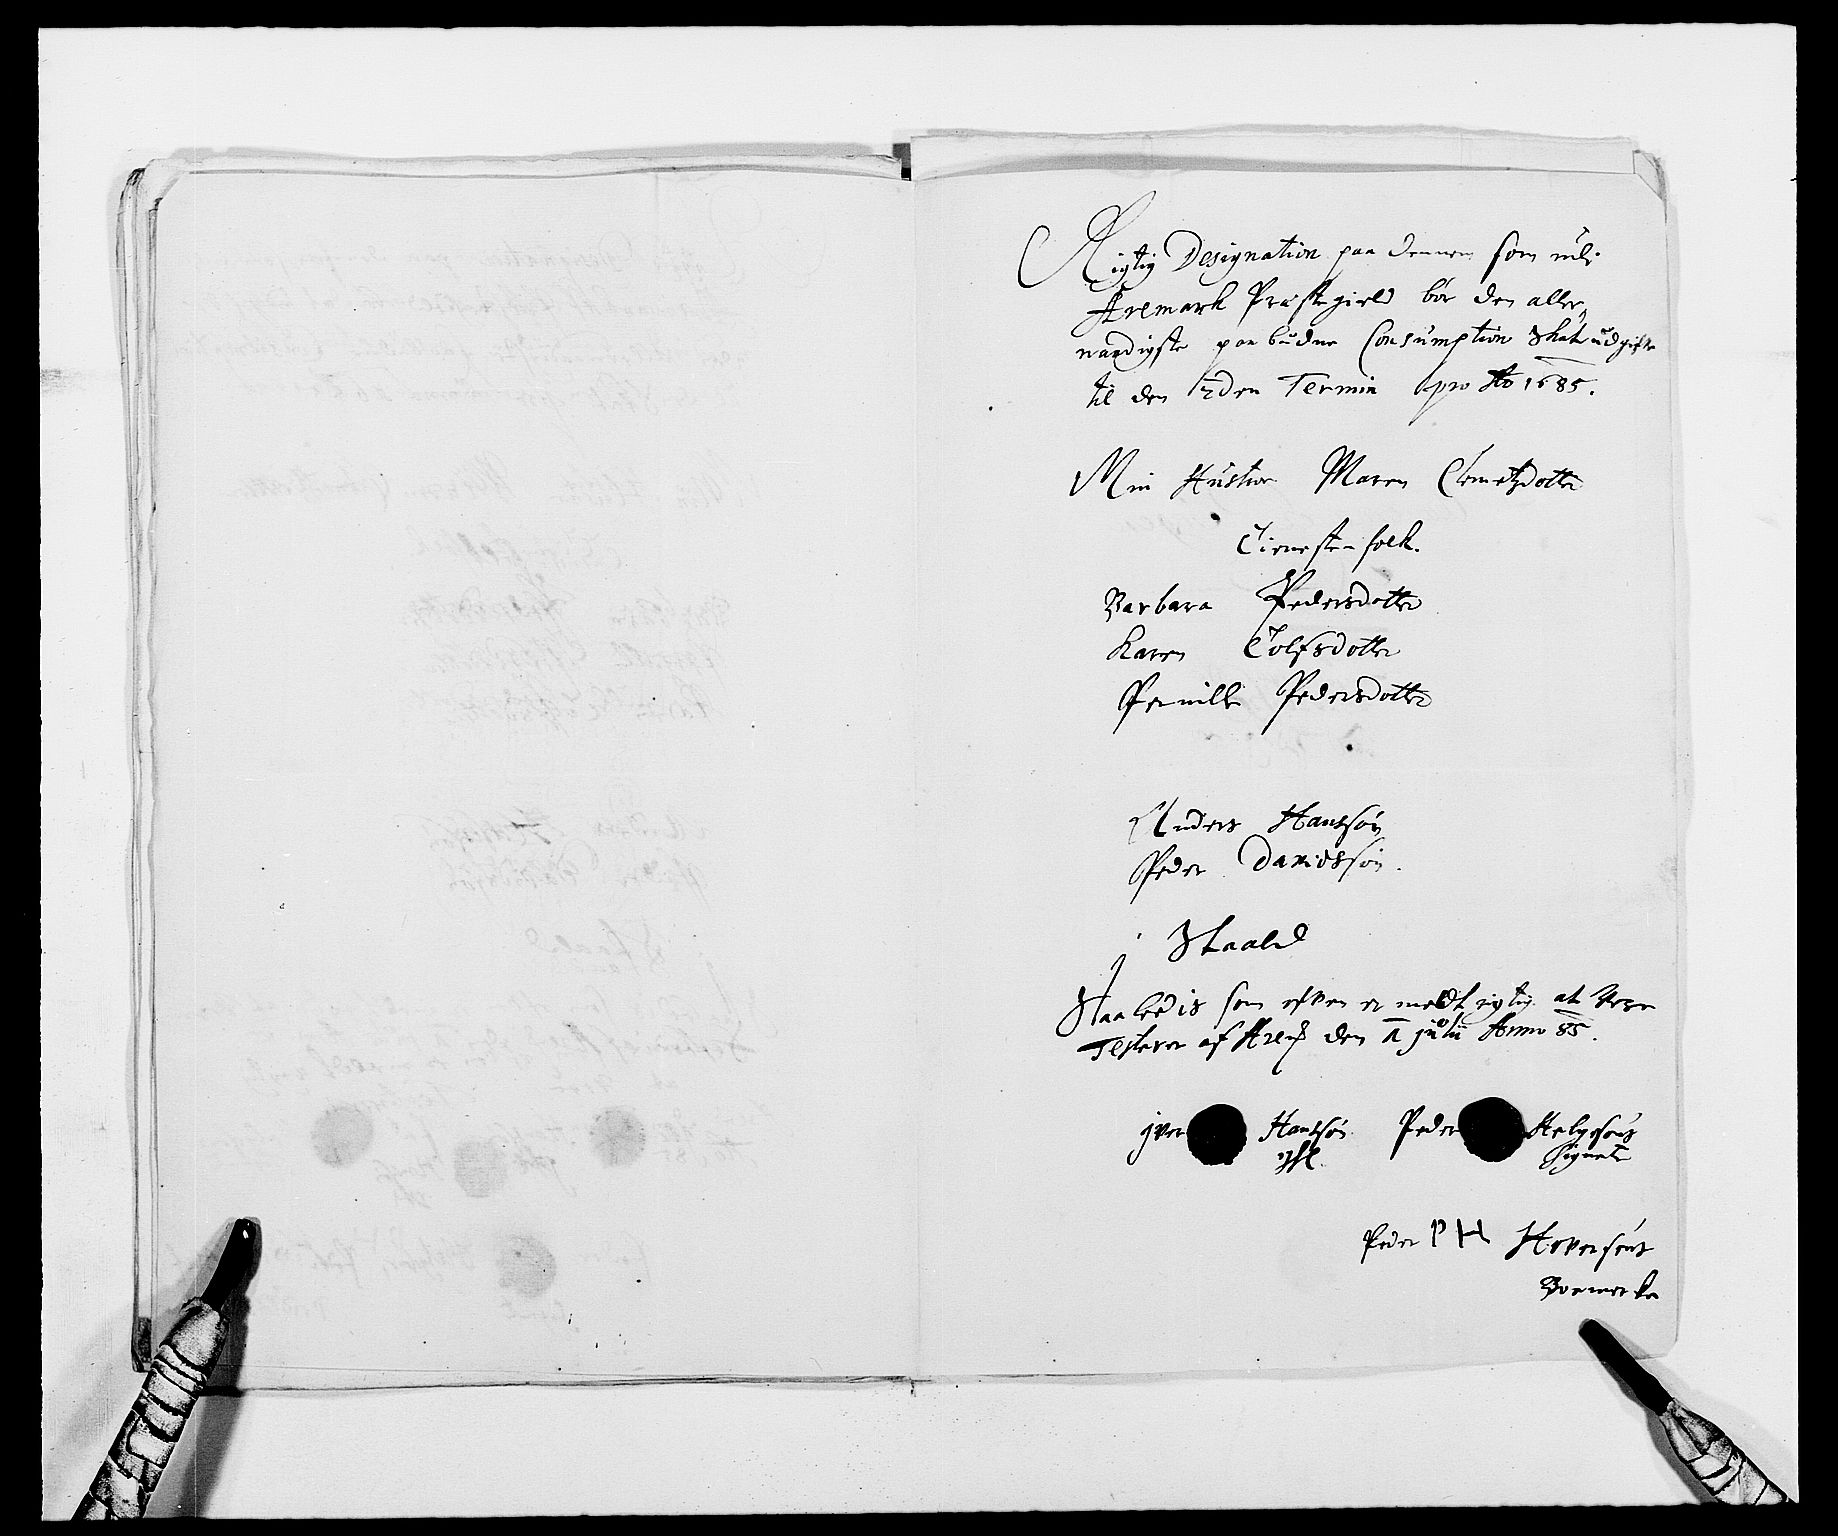 Rigtig Designation paa dennem som udi
Aremark Præstegield bør den aller,
naadigste paa budne Consumption Skat udgifte
til den 2den Termin pro Ao 1685.
Min Hustroe Maren Clemetzdotter
Tieneste folk.
Barbara Pedersdotter
Karen Tolfsdotter
Pernille Pedersdotter
Anders Hansøn
Peder Davidssøn.
j Staald
Saaledis som ofven er meldt rigtig at Være
Testerer af den julii Anno 85.
jver Hansøn Peder Helgesøns
Signete
Peder PH Hoversøns
Boemerke